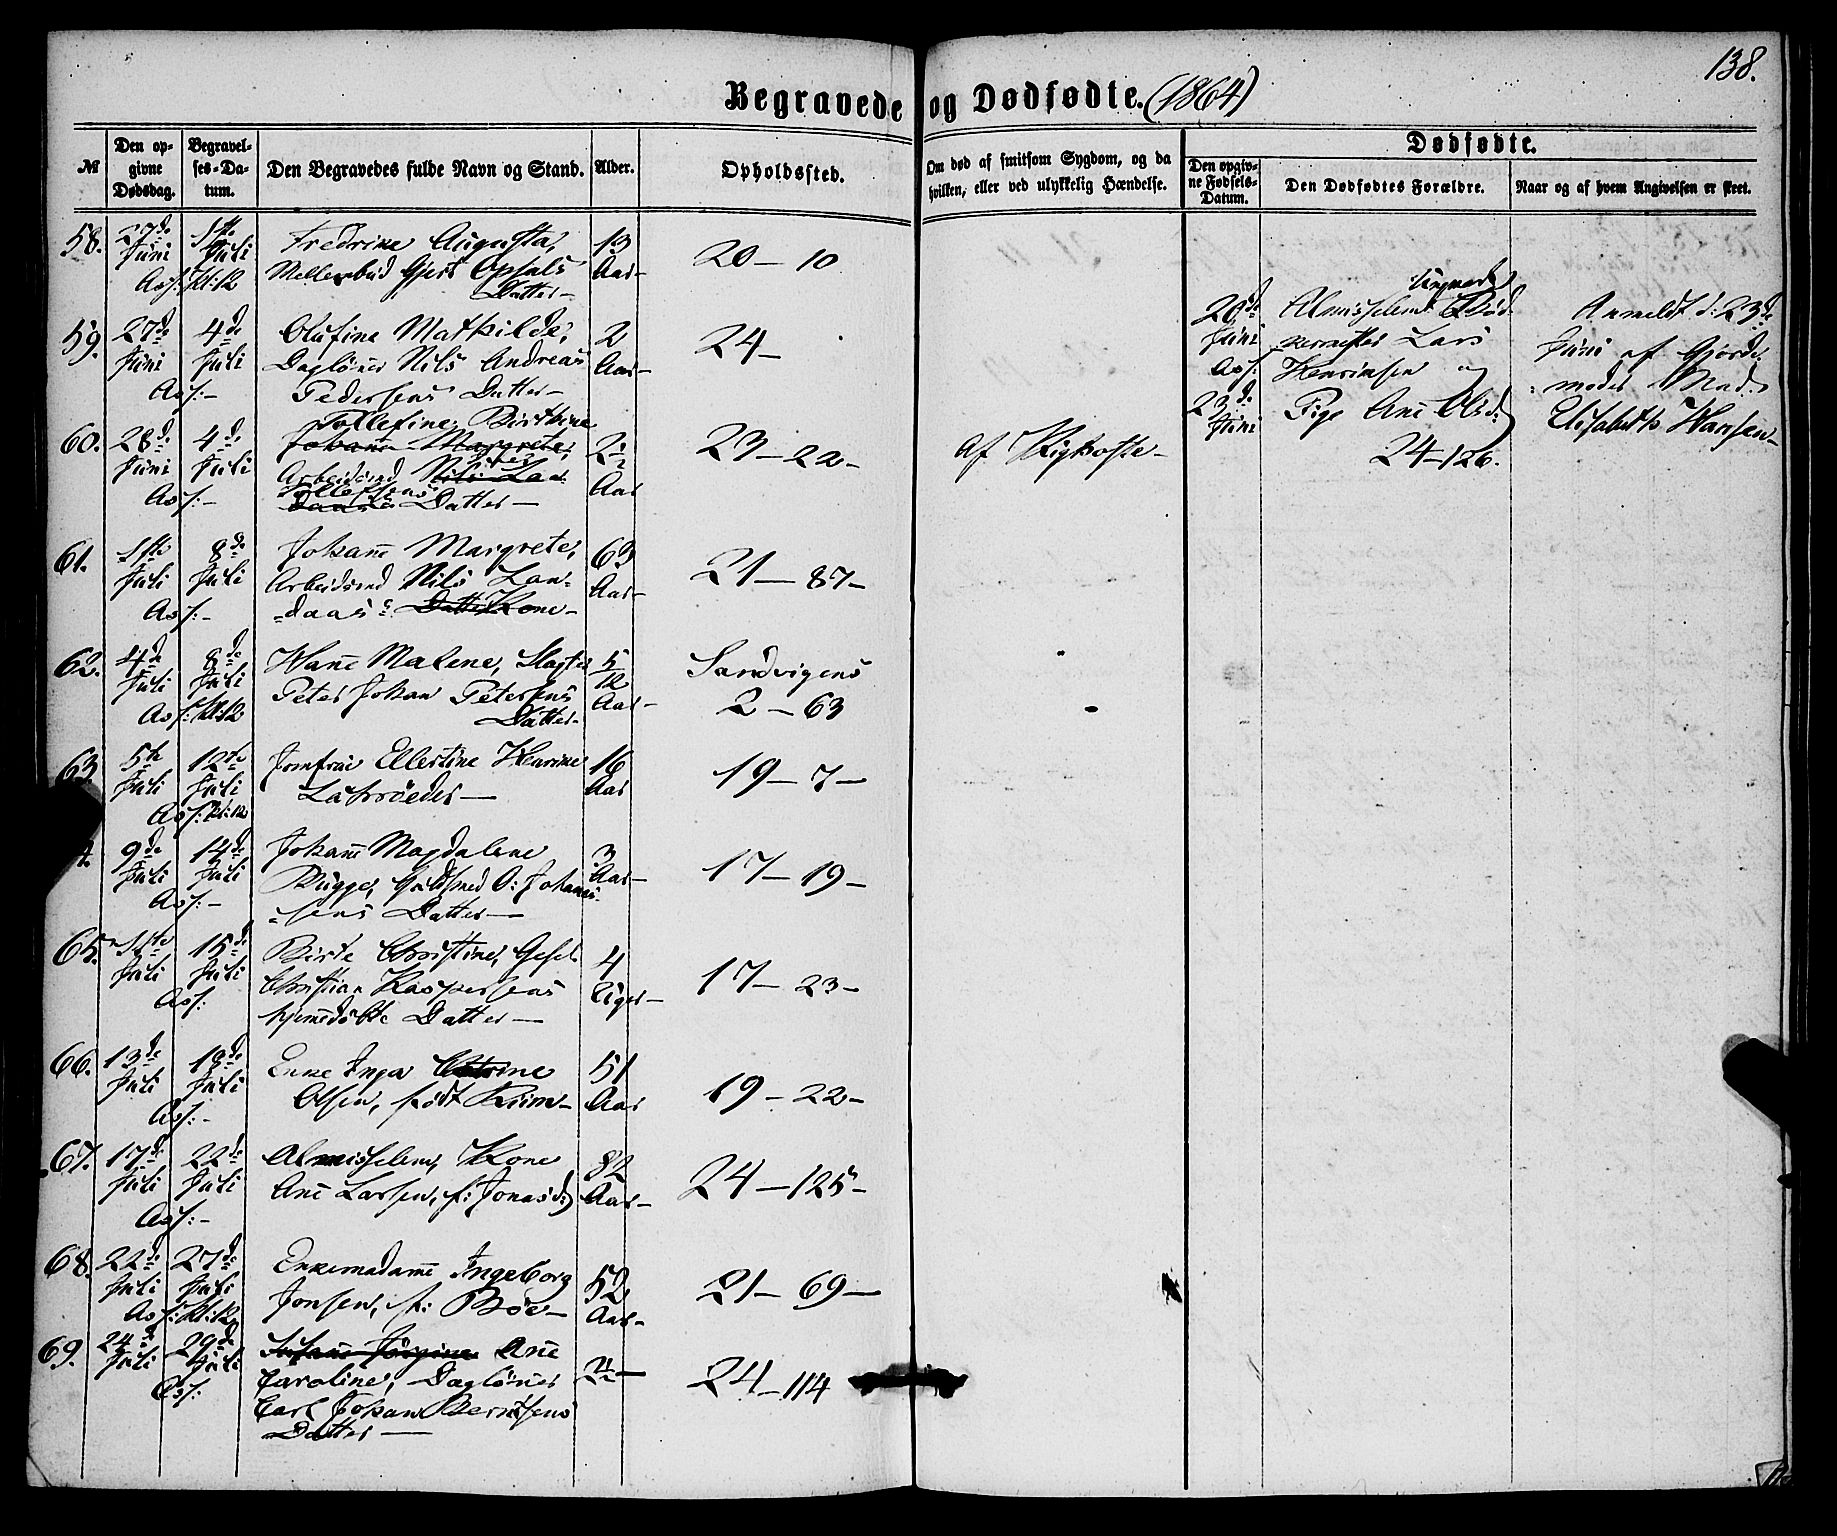 138.
Begravede og Dødfødte. (1864)
№
Den opgivne Dødsdag.
Begravelses-Datum.
Den Begravedes fulde Navn og Stand.
Alder.
Opholdssted.
Om død af smitsom Sygdom, og da hvilken, eller ved ulykkelig Hændelse.
Dødfødte.
Den opgivne Fødsels-Datum.
Den Dødfødtes Forældre.
Naar og af hvem Angivelsen er skeet.
58. 27de Juni 1ste Juli Fredrine Augusta, 13 Aar- 20-10
Ass: kl: 12 Gjert Opsals
Datter-
59. 27de Juni 4de Juli Olufine Mathilde, 2 Aar- 24-
Daglönner Nils Andreas
Ass:- Pedersens Datter-
60. 28de Juni 4de Juli Tollefine Birthine 2½ Aar 23-22- Af Kighoste-
Johanne Margrete,
Arbeidsmd Nils Lan
Ass:- Tollefsens
daas Datter-
61. 1ste Juli 8de Juli Johanne Margrete, 63 Aar- 21-87-
Arbeidsmd Nils Lan-
Ass:- -daas's Datter Kone-
62. 4de Juli 8de Juli Hanne Malene, Slagter 5/12 Aar- Sandvigens
Peter Johan Petersens 2-63
Ass: kl: 12 Datter-
63. 5te Juli 12te Juli Jomfrue Ellertine Henrine 16 Aar 19-7-
Ass: kl: 12
9de Juli 14de Juli Johanne Magdalene 3 Aar- 17-19-
Brügge, Guldsmed O: Johannes-
Ass:- -sens Datter-
65. 11te Juli 15de Juli Birte Christine, Gesel 4 Uger- 17-23-
Christian Kaspersens
Ass: hjemedöbte Datter-
66. 13de Juli 18de Juli Enke Inga 51 Aar 19-22-
Ass:- Olsen, född
67. 17de Juli 22de Juli Almisselem, Kone 82 Aar- 24-125-
Ane Larsen, f: Jonasd:
Ass:-
68. 22de Juli 27de Juli Enkemadame Ingeborg 52 Aar- 21-69-
Jonsen, f: Böe-
Ass: kl: 12
69. 24de Juli 29de Juli Ane 24-114
Caroline, Daglönner
Ass: Carl Johan Berntsens
Datter-
20de Juni
Ass:
23de Juni
Ungmand
Almisselem
Lars
Henriksen og
Pige Ane Olsd:
24-126.
Anmeldt d: 23de
Juni af Gjorde-
-moder Mad:
Elisabeth Hansen-